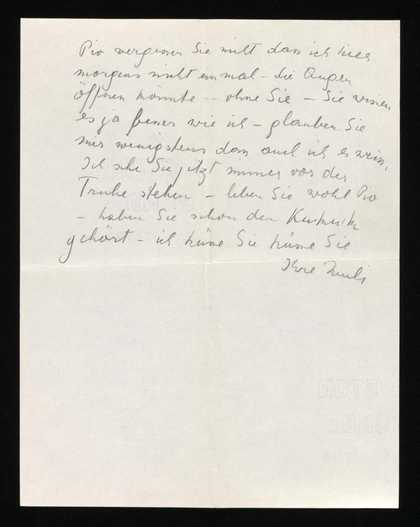 Pio vergessen Sie nicht dass ich hier
morgens nicht einmal - die Augen
öffnen könnte - ohne Sie - Sie wissen
es ja besser wie ich - glauben Sie
mir wenigstens dass auch ich es weiss.
Ich sehe Sie jetzt immer vor der
Truhe stehen - leben Sie wohl Pio
- haben Sie schon den Kuckuck
gehört - ich küsse Sie küsse Sie
Ihre